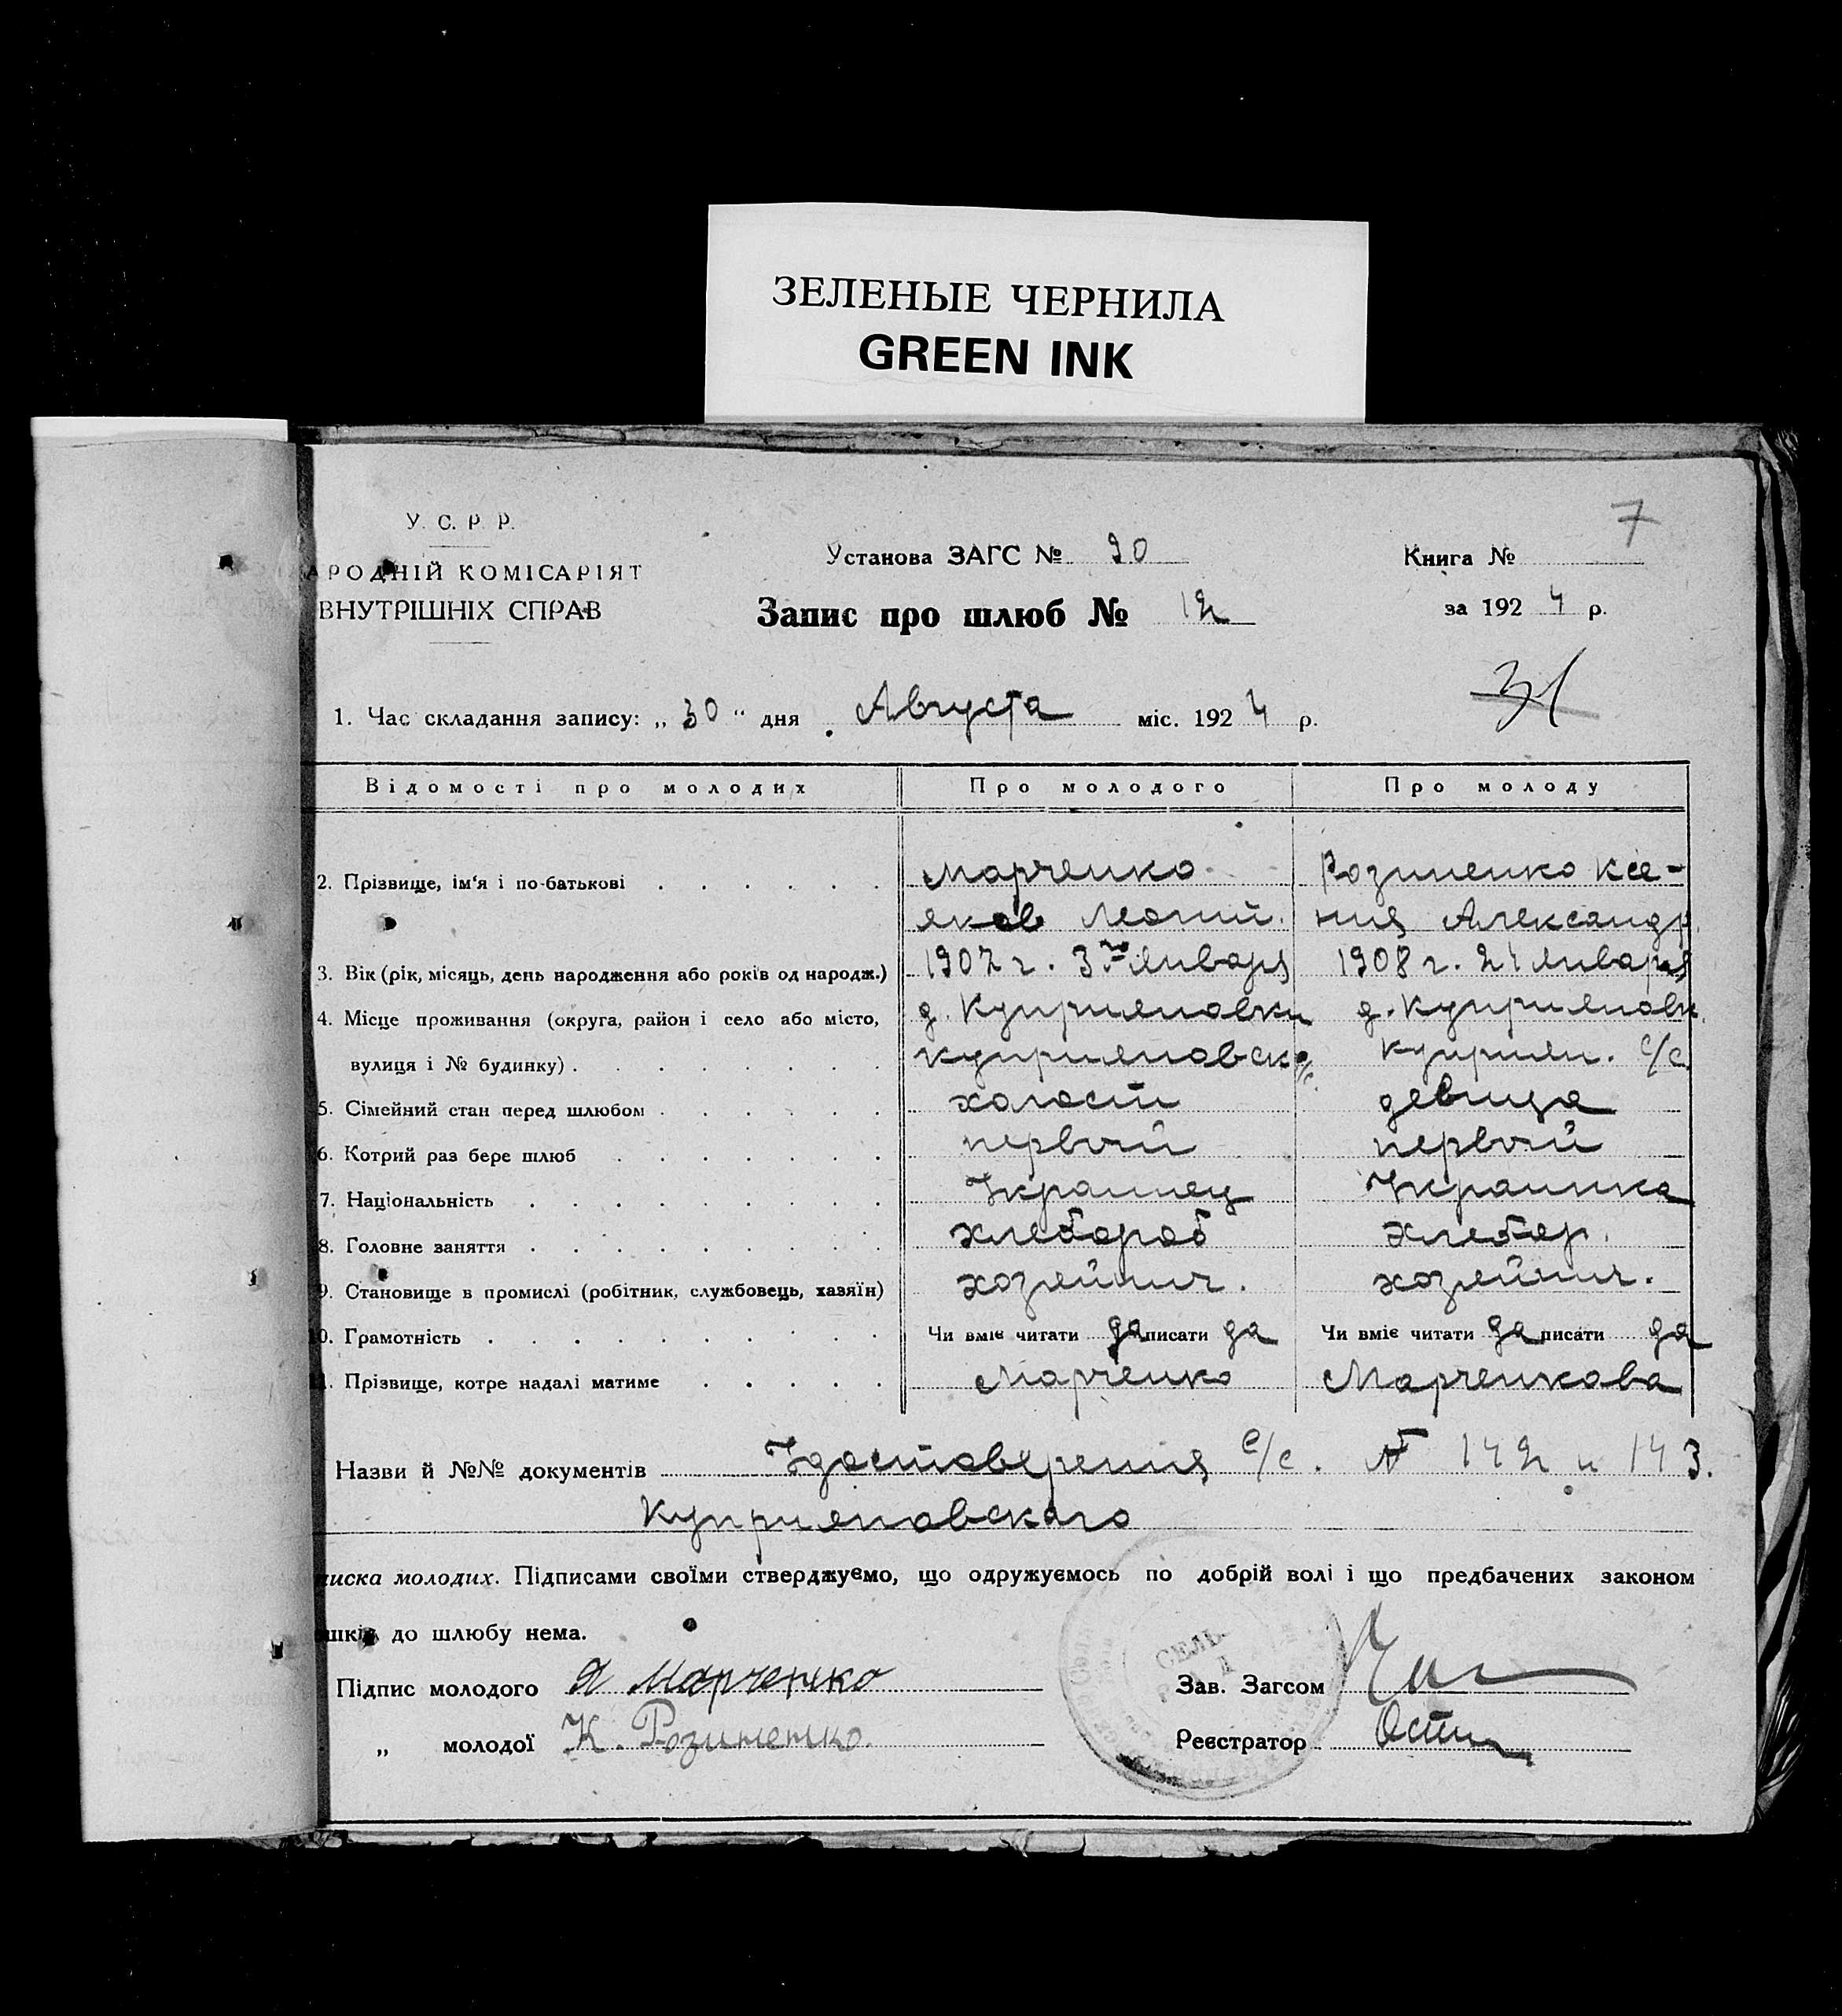 ЗЕЛЕНЫЕ ЧЕРНИЛА
GREEN INK
7
У. С. Р. Р.
АРОДНІЙ КОМІСАРІЯТ
ВНУТРІШНІХ СПРАВ
Установа ЗАГС № 20
Книга №
Запис про шлюб № 12
за 1924 р.
31
1. Час складання запису: „30“ дня Августа міс. 1924 р.
Відомості про молодих Про молодого Про молоду
2. Прізвище, ім'я і по-батькові Марченко Розиненко Ксе-
яков ния Александр.
3. Вік (рік, місяць, день народження або років од народж.) 1902 г. 3го января 1908 г. 21 января
4. Місце проживання (округа, район і село або місто, д. Куприяновки д. Куприяновк.
вулиця і № будинку) Куприяновск с/с. Куприян. с/с.
5. Сімейний стан перед шлюбом холост девица
6. Котрий раз бере шлюб первый первый
7. Національність Украинец Украинка
8. Головне заняття хлебороб хлебор.
9. Становище в промислі (робітник, службовець, хазяїн) хозяйнич. хозяйнич.
10. Грамотність Чи вміє читати да писати да Чи вміє читати да писати да
11. Прізвище, котре надалі матиме Марченко Марченкова
Назви й №№ документів Удостоверения с/с. № 142 и 143.
Куприяновскаго
писка молодих. Підписами своїми стверджуємо, що одружуємось по добрій волі і що предбачених законом
шкід до шлюбу нема.
Підпис молодого Я Марченко Зав. Загсом
„ молодої К. Розиненко. Реєстратор
СЕЛЬ-